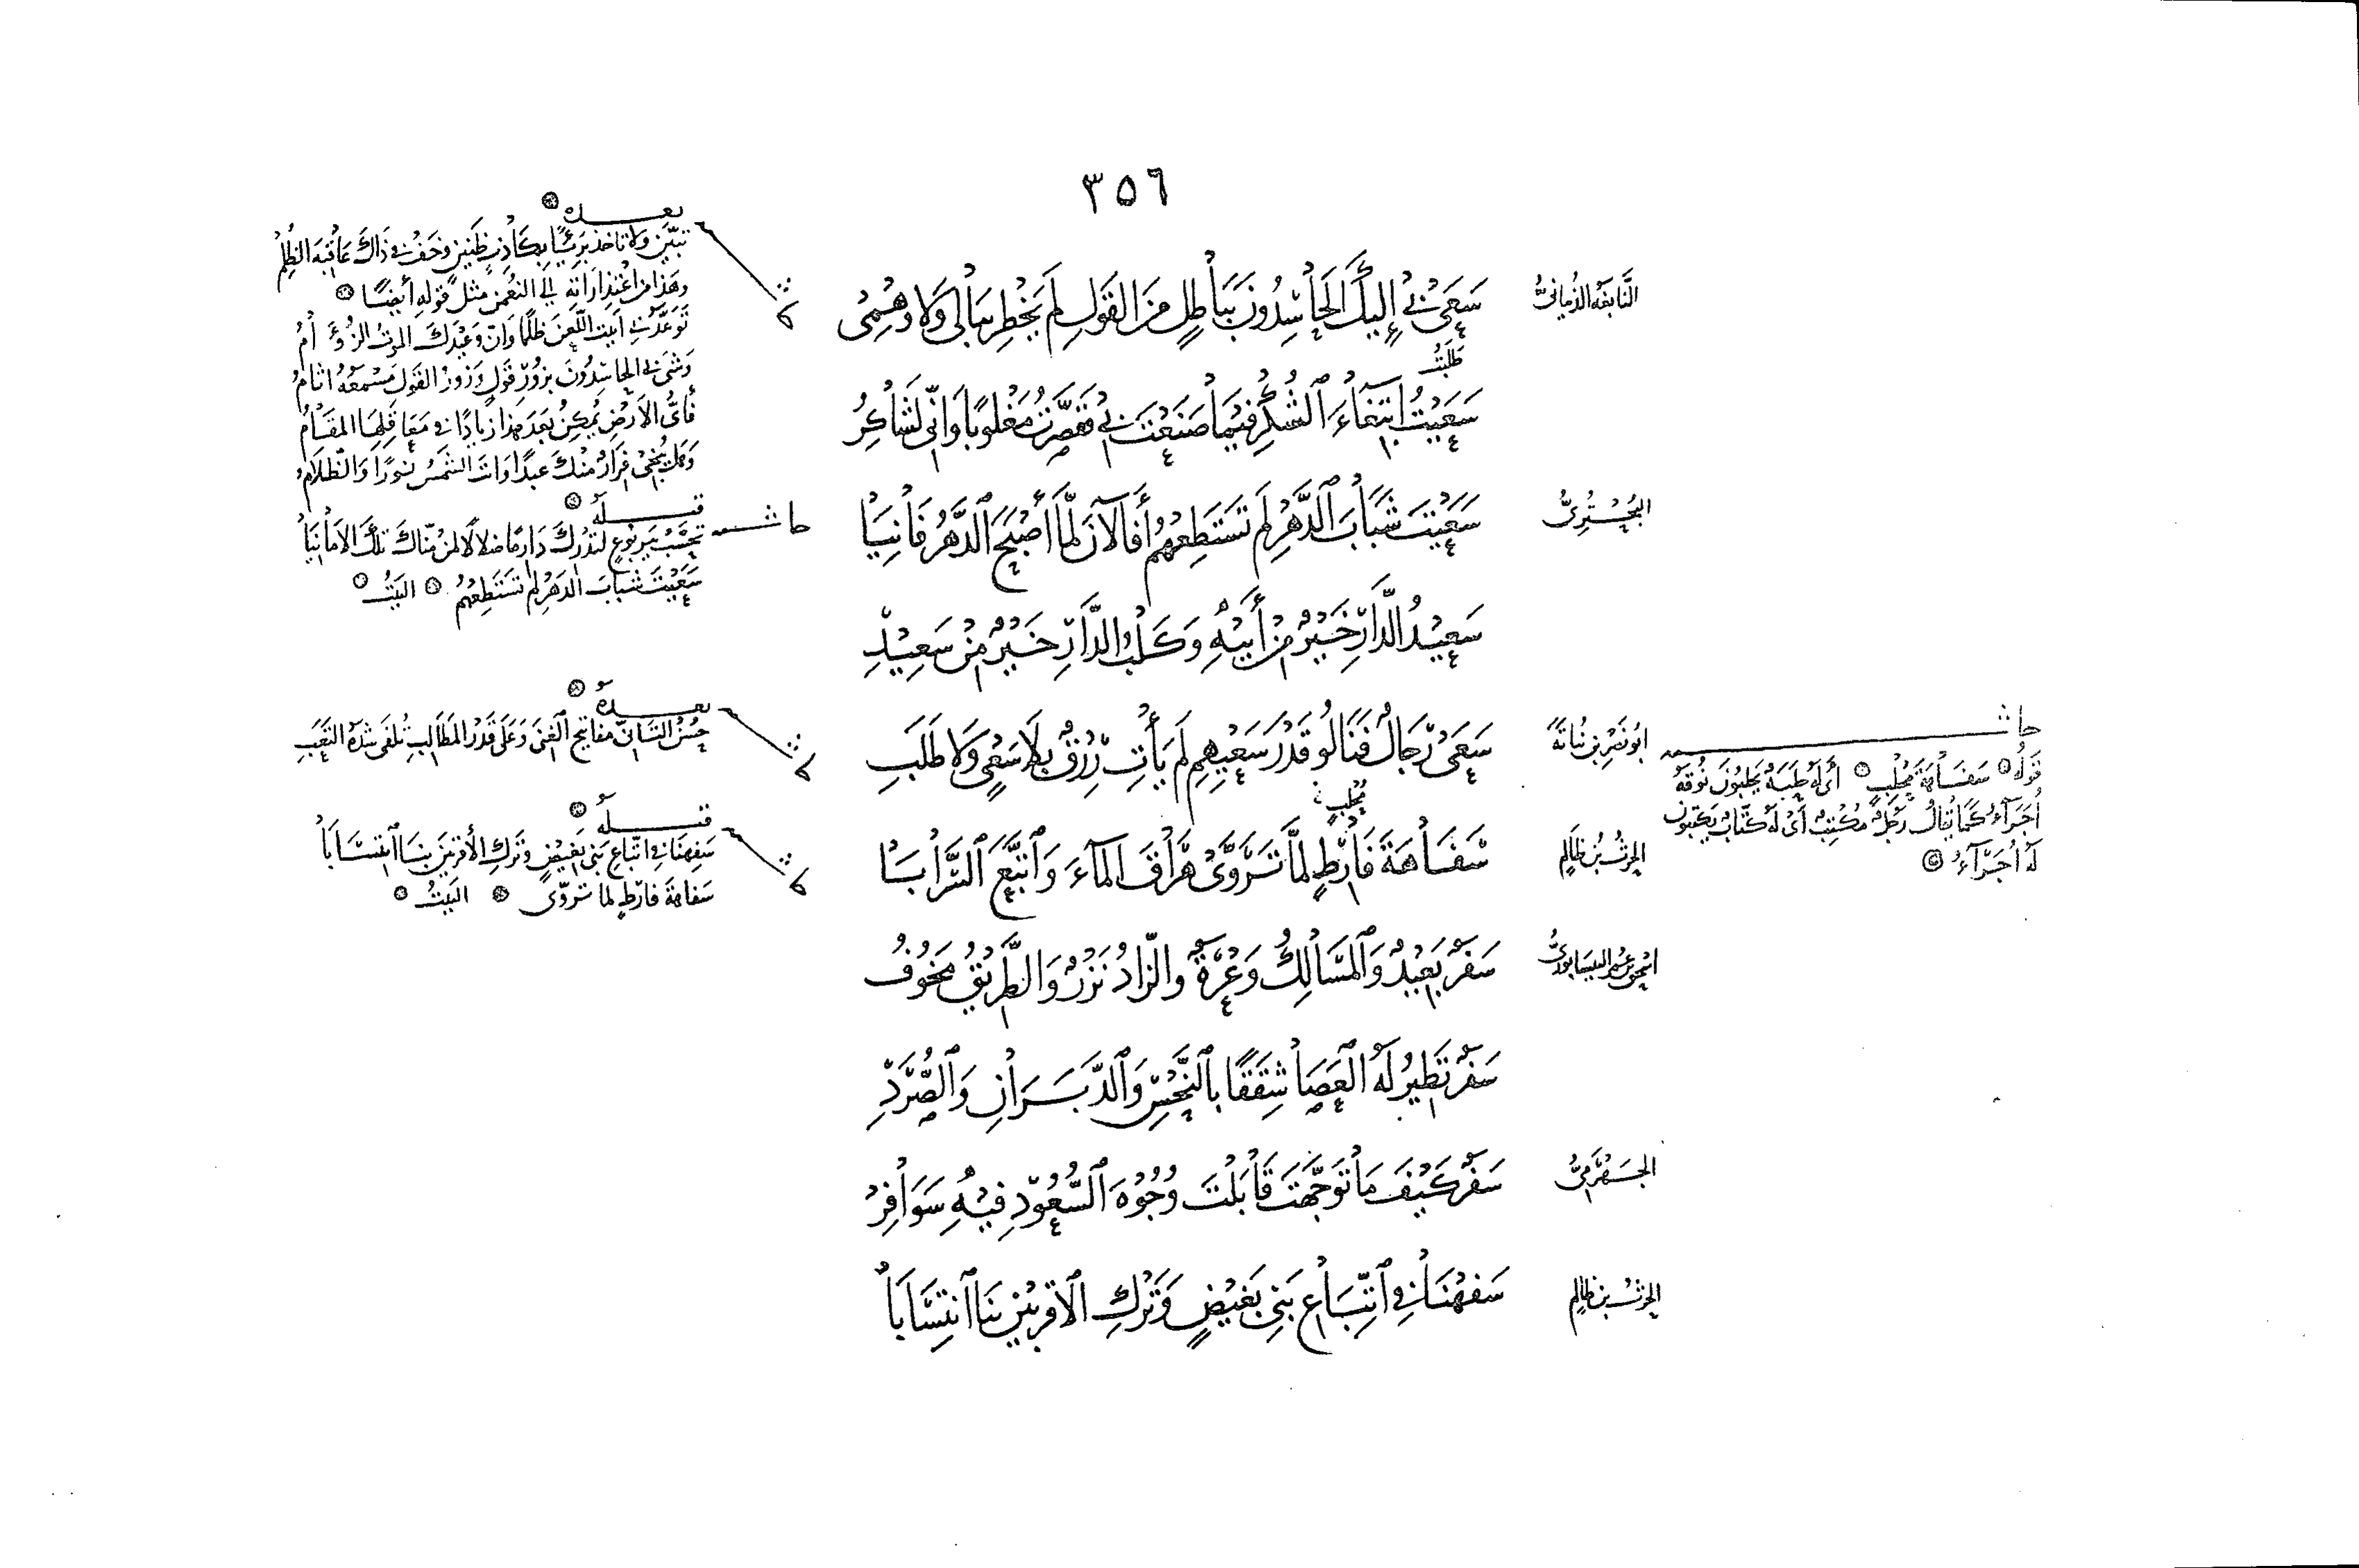 ٣٥٦
النَّابغَةُ الذُبيانىُّ
سَعَىٰ بِىْ إِلَيكَ الحَاسِدُونَ بَبَاطِلٍ مِنَ القَولِ لَم يَخْطِر بَبَالى وَلَا وَهْمِىْ
طَلَبتُ
سَعَيْتُ ابتِغَاءَ الشُكرِ فيْمَا صَنَعْتَ بِىْ فَقَصَّرتُ مَغْلوبًا وَانّى لَشَاكِرُ
البُحْتُرِىُّ
سَعَيْتَ شَبَابَ الدَّهْرِ لَم تَستَطِعْهُمُ أَفَالآنَ لمَّا أَصْبَحَ الدَّهْرُ فَانِيَا
سَعِيْدُ الدَّارِ خَيْرٌ مِنْ أَبيْهِ وَكَلْبُ الدَّارِ خَيْرٌ مِنْ سَعِيْدِ
ابُو نَصرِ بن نُباتَةَ
سَعَىٰ رَجَالٌ فَنَالُو قَدْرَ سَعْيِهِمِ لَم يَأتِ رِزْقٌ بلَا سَعْىٍ وَلَا طَلَبِ
مُحْلِبٍ
الحرثُ بْنُ ظَالِمٍ
سَفَاهَةَ فَارِطٍ لمَّا تَرَوَّىٰ هَرَاقَ المآءَ وَاتَّبَعَ السَّرَابَا
سَفَرٌ بَعيْدٌ وَالمسَالِكُ وَعْرَةٌ والزَّادُ نَزْرٌ وَالطَّرِيْقُ مَخُوْفُ
سَفَرٌ تَطِيرُ لَهُ العَصَا شِقَقًا بالنَّحْسِ وَالدَّبَرَانِ وَالصُّرَدِ
الجَهْرَمىُّ
سَفَرٌ كَيْفَ مَا تَوَجَّهتَ قَابَلْتَ وُجُوْهَ السُّعُوْدِ فِيْهِ سَوَافِرْ
الحرثُ بن ظالِمٍ
سَفِهْنَا فِى اتِّبَاعِ بَنِى بَغيْضٍ وَتَرْكِ الاقرَبيْنِ بنَا انتِسَابَا
بعده
تبيّن ولا تاخذ بَرِيْئًا بِكَاذِبٍ ظَنينٍ وخَفْ فى ذَاكَ عَاقبَةَ الظُلْمِ
وهَذا من اعْتِذارَاتِهِ إلى النُعْمٰنِ مثلُ قَولِهِ أيضًا
تَوَعَّدَنى ابيتَ اللَّعنَ ظلمًا وَانَّ وَعيْدَكَ المَوتُ الزُؤَامُ
وَشَى بى الحاسِدُونَ بزُورِ قَولٍ وَزُورُ القَولِ مَسْمعُهُ اثامُ
فأىُّ الارضِ يُمكِنُ بَعدَ هذا زِيادًا فى مَعَاقِلِهَا المقَامُ
وَهَل يُنْجى فِرَارٌ منْكَ عبدًا وَانتَ الشمسُ نورًا وَالظلامُ
حاشـ
قبـلَهُ
سَعَيْتَ شبابَ الدهرِ لم تستَطِعْهُمُ البَيْتُ
بعدهُ
حُسْنُ التَّأَنّى مفاتيح الغِنى وَعَلَى قَدْرِ المَطَالِبِ تُلقَى شدّةُ التعَبِ
قبـلَهُ
سَفِهنَا فى اتّباعِ بَنى بَغيضٍ وتَركِ الأقربينَ بنَا انتسَابَا
سَفاهةَ فارطٍ لما تروّى البَيْتُ
حاشـ
قَولُهُ سَفَاهةَ مُحْلِبٍ أى لهُ حَلَبَةٌ يَحلبُونَ نُوقَهُ
أُجَرَآءُ كَمَا يُقالُ رَجُلٌ مُكْتِبٌ أىْ لَهُ كتّابٌ يَكتبُون
لَهُ أُجَرَآءُ